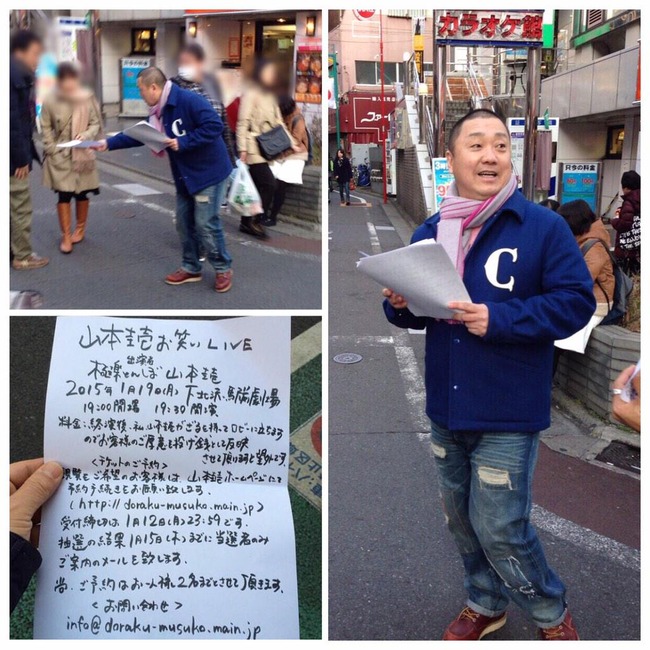 C
カラオケ館
C
只今の料金
山本圭壱お笑いLIVE
出演者
極楽とんぼ 山本圭壱
2015年1月19日(月) 下北沢・駅前劇場
19:00開場 19:30開演
料金:終演後、私山本圭壱がざるを持ってロビーに立ちます
のでお客様のご厚意を投げ銭として反映
させて頂いますと望外です。
<チケットのご予約>
観覧をご希望のお客様は 山本圭壱ホームページにて
予約手続きをお願い致します。
(http://doraku-musuko.main.jp)
受付締切は1月12日(月)23:59です。
抽選の結果1月15日(木)までに当選者のみ
ご案内のメールを致します。
尚、ご予約はお一人様2名までとさせて頂きます。
<お問い合わせ>
info@doraku-musuko.main.jp